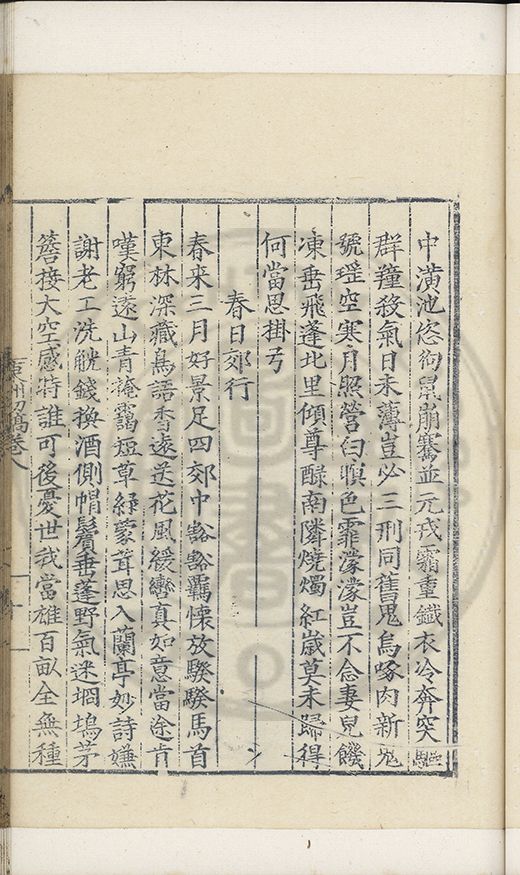 中潢池恣狗鼠崩騫並元戎霜重鐵衣冷奔突驅
群羶殺氣日未薄豈必三刑同舊鬼烏啄肉新鬼
號瑶空寒月照營臼瞋色霏濛濛豈不念妻兒饑
凍垂飛蓬北里傾尊醁南隣燒燭紅歲莫未歸得
何當思掛弓
春日郊行
春来三月好景足四郊中豁豁覊懷放騤騤馬首
東林深藏鳥語香遠送花風緩轡真如意當途肯
嘆窮遠山青掩靄短草緑蒙茸思入蘭亭妙詩嫌
謝老工洗觥錢換酒側帽鬢垂蓬野氣迷堈塢茅
簷接大空感時誰可後憂世我當雄百畝全無種
州初稿卷八